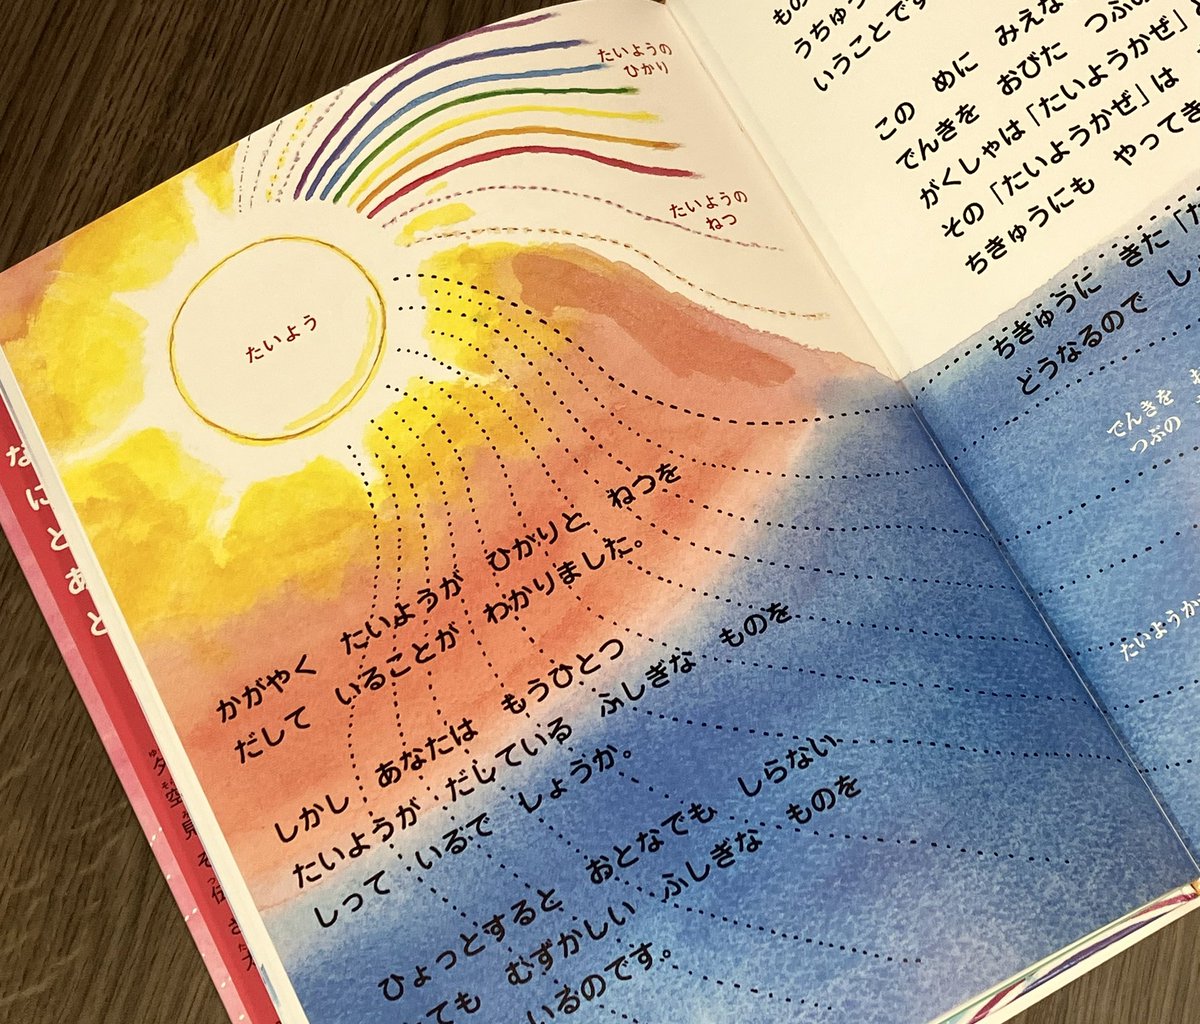 たいようの
ひかり
たいようの
ねつ
たいよう
かがやく たいようが ひかりと ねつを
だして いることが わかりました。
しかし あなたは もうひとつ
たいようが だしている ふしぎな ものを
しって いるで しょうか。
ひょっとすると おとなでも しらない
ても むずかしい ふしぎな ものを
いるのです。
うちゅう
いうことです
この めに みえな
でんきを おびた つぶの
がくしゃは「たいようかぜ」と
その「たいようかぜ」は
ちきゅうにも やってき
ちきゅうに きた「た
どうなるので し
でんきを
つぶの
たいようか
なにとあと